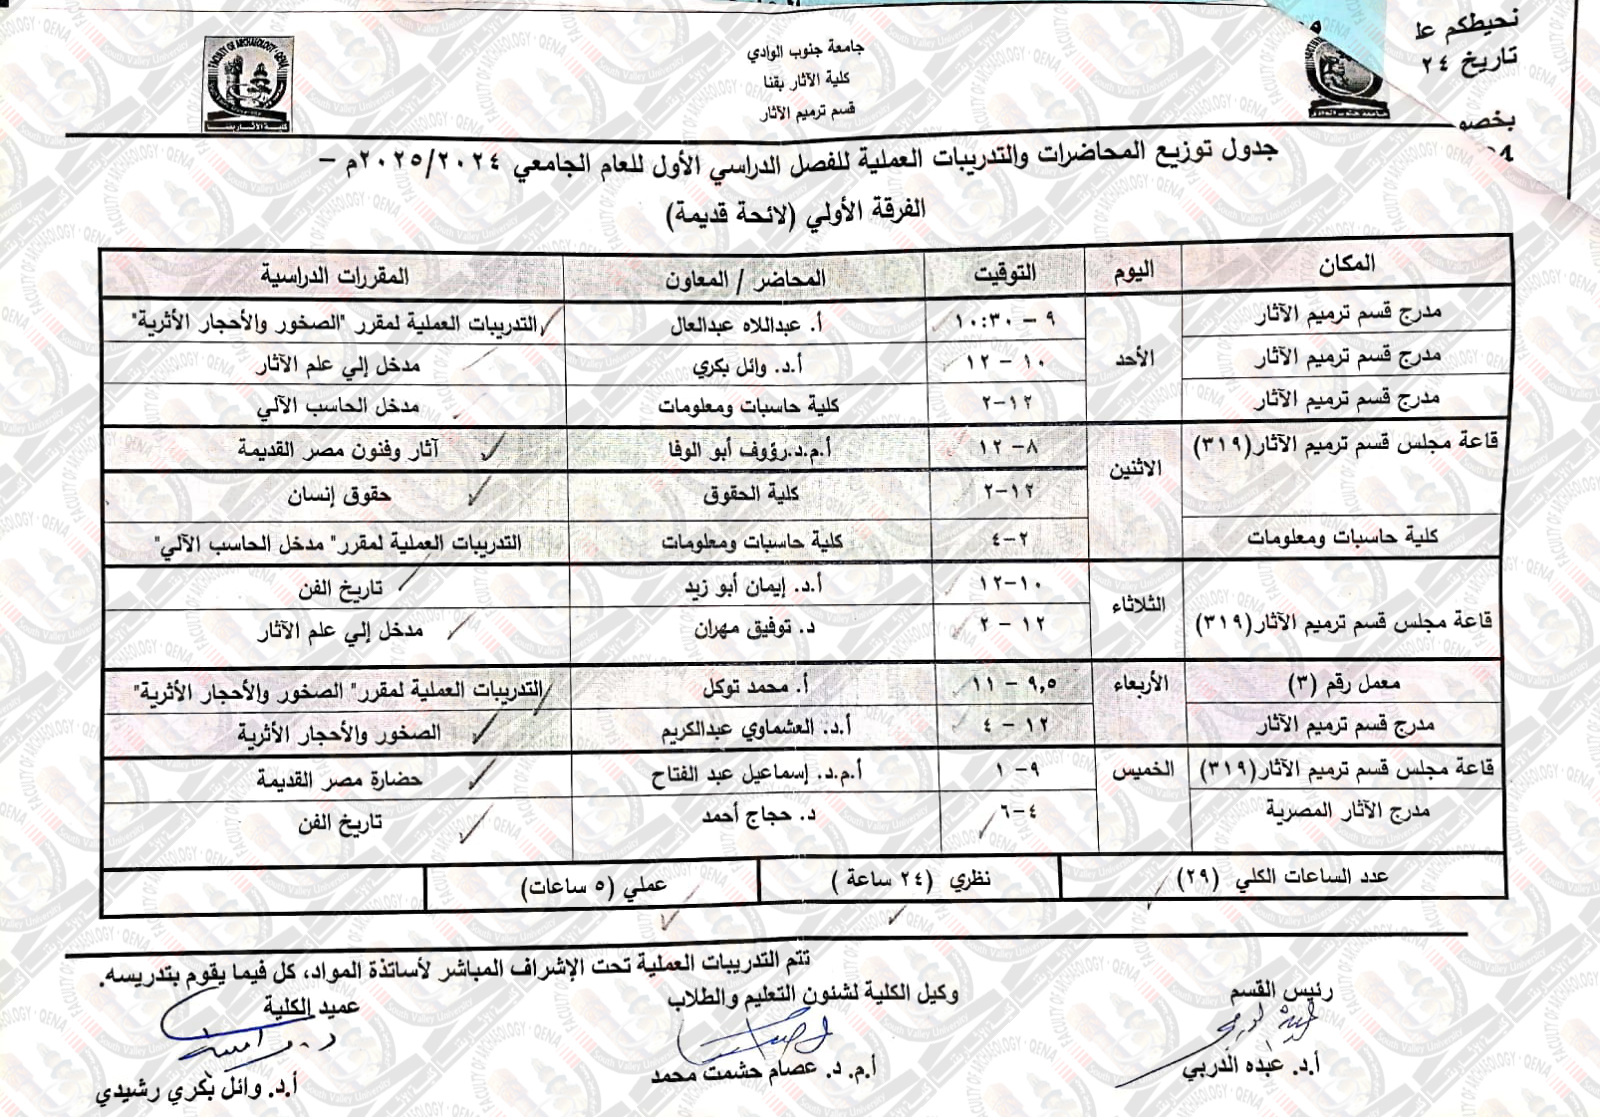 نحيطكم
تاريخ ٢٤
بخصو
جامعة جنوب الوادي
كلية الآثار بقنا
قسم ترميم الآثار
جدول توزيع المحاضرات والتدريبات العملية للفصل الدراسي الأول للعام الجامعي ٢٠٢٥/٢٠٢٤م –
الفرقة الأولي (لائحة قديمة)
المكان اليوم التوقيت المحاضر / المعاون المقررات الدراسية
مدرج قسم ترميم الآثار الأحد ٩ – ١٠:٣٠ أ. عبداللاه عبدالعال التدريبات العملية لمقرر "الصخور والأحجار الأثرية"
مدرج قسم ترميم الآثار ١٠ – ١٢ أ.د. وائل بكري مدخل إلي علم الآثار
مدرج قسم ترميم الآثار ١٢-٢ كلية حاسبات ومعلومات مدخل الحاسب الآلي
قاعة مجلس قسم ترميم الآثار(٣١٩) الاثنين ٨- ١٢ أ.م.د.رؤوف أبو الوفا آثار وفنون مصر القديمة
١٢-٢ كلية الحقوق حقوق إنسان
كلية حاسبات ومعلومات ٢-٤ كلية حاسبات ومعلومات التدريبات العملية لمقرر" مدخل الحاسب الآلي"
قاعة مجلس قسم ترميم الآثار(٣١٩) الثلاثاء ١٠-١٢ أ.د. إيمان أبو زيد تاريخ الفن
١٢ – ٢ د. توفيق مهران مدخل إلي علم الآثار
معمل رقم (٣) الأربعاء ٩,٥ – ١١ أ. محمد توكل التدريبات العملية لمقرر" الصخور والأحجار الأثرية"
مدرج قسم ترميم الآثار ١٢ – ٤ أ.د. العشماوي عبدالكريم الصخور والأحجار الأثرية
قاعة مجلس قسم ترميم الآثار(٣١٩) الخميس ٩- ١ أ.م.د. إسماعيل عبد الفتاح حضارة مصر القديمة
مدرج الآثار المصرية ٤-٦ د. حجاج أحمد تاريخ الفن
عدد الساعات الكلي (٢٩) نظري (٢٤ ساعة ) عملي (٥ ساعات)
تتم التدريبات العملية تحت الإشراف المباشر لأساتذة المواد، كل فيما يقوم بتدريسه.
رئيس القسم وكيل الكلية لشئون التعليم والطلاب عميد الكلية
أ.د. عبده الدربي أ.م. د. عصام حشمت محمد أ.د. وائل بكري رشيدي